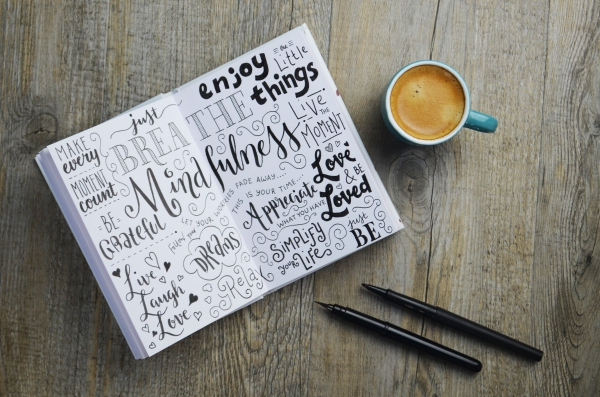 MAKE
every
MOMENT
count
BE
Grateful
just
BREATHE
Mindfulness
LET YOUR WORRIES FADE AWAY....
THIS IS YOUR TIME...
follow YOUR
DREAMS
Relax
Live
Laugh
Love
enjoy
the
Little
things
LIVE
THE
MOMENT
Love
& BE
Loved
Appreciate
WHAT YOU HAVE
Simplify
your Life
just
BE